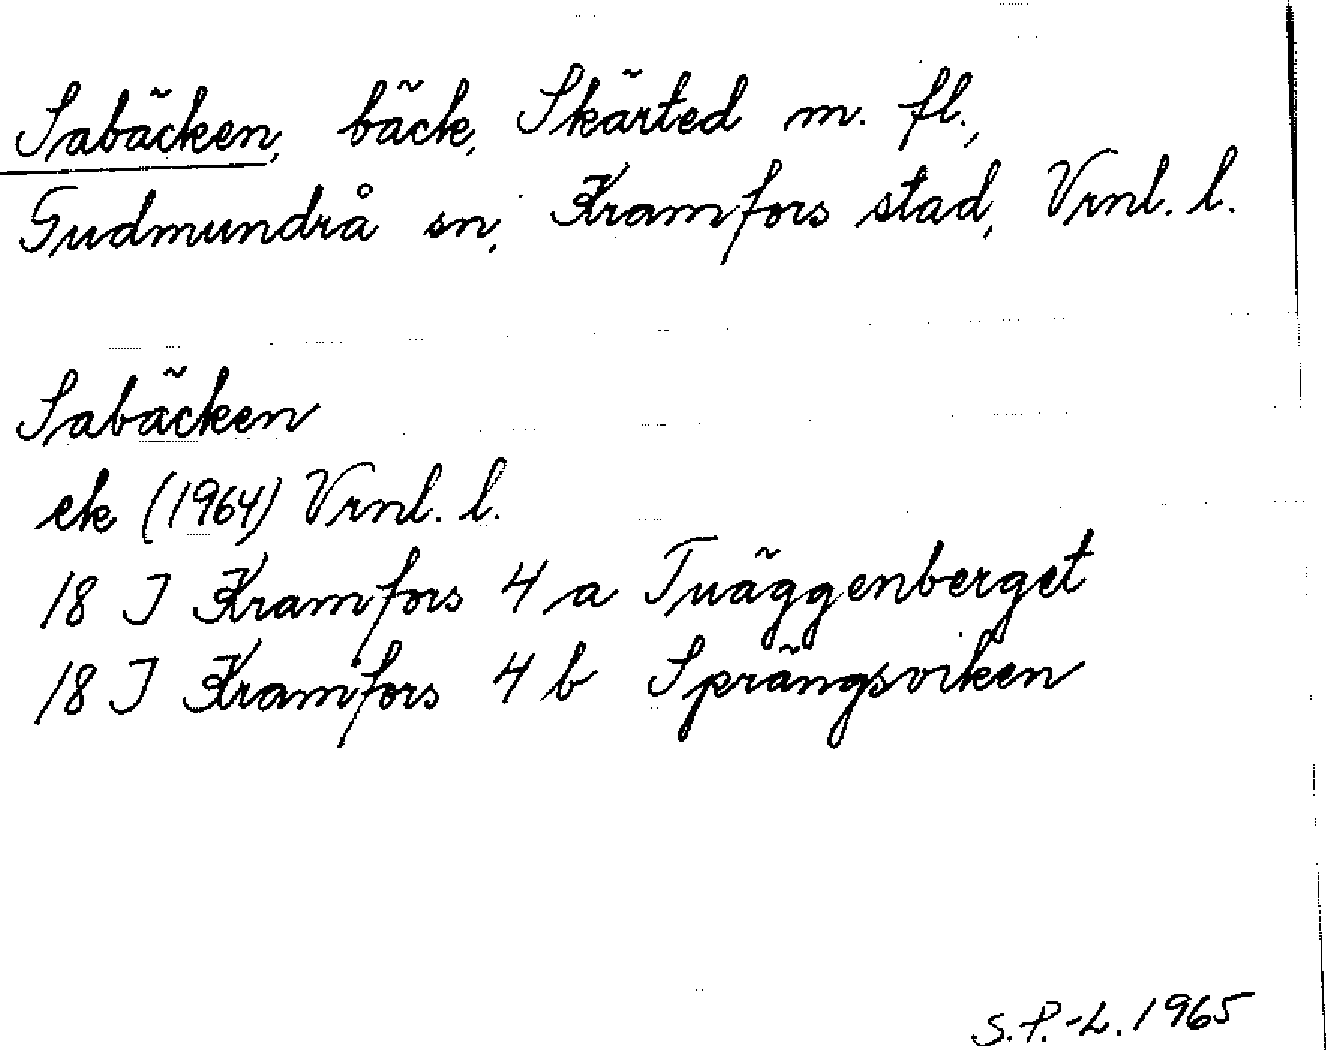 Sabäcken, bäck, Skärted m. fl.,
Gudmundrå sn, Kramfors stad, Vrnl. l.
Sabäcken
ek (1964) Vrnl. l.
18 I Kramfors 4 a Tväggenberget
18 I Kramfors 4 b Sprängsviken
S.P.-L. 1965